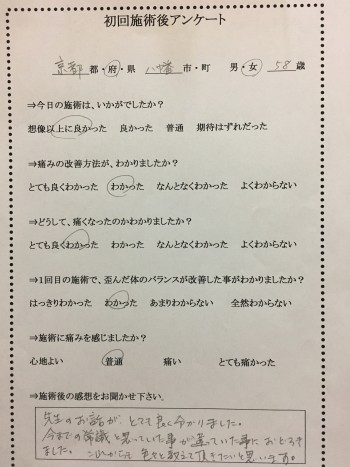 初回施術後アンケート
京都 都・府・県 八幡 市・町 男・女 58 歳
⇒今日の施術は、いかがでしたか？
想像以上に良かった 良かった 普通 期待はずれだった
⇒痛みの改善方法が、わかりましたか？
とても良くわかった わかった なんとなくわかった よくわからない
⇒どうして、痛くなったのかわかりましたか？
とても良くわかった わかった なんとなくわかった よくわからない
⇒1回目の施術で、歪んだ体のバランスが改善した事がわかりましたか？
はっきりわかった わかった あまりわからない 全然わからない
⇒施術に痛みを感じましたか？
心地よい 普通 痛い とても痛かった
⇒施術後の感想をお聞かせ下さい。
先生のお話が、とても良く分かりました。
今までの常識と思っていた事が違っていた事におどろき
ました。これからも 色々と教えて頂きたいと思います。